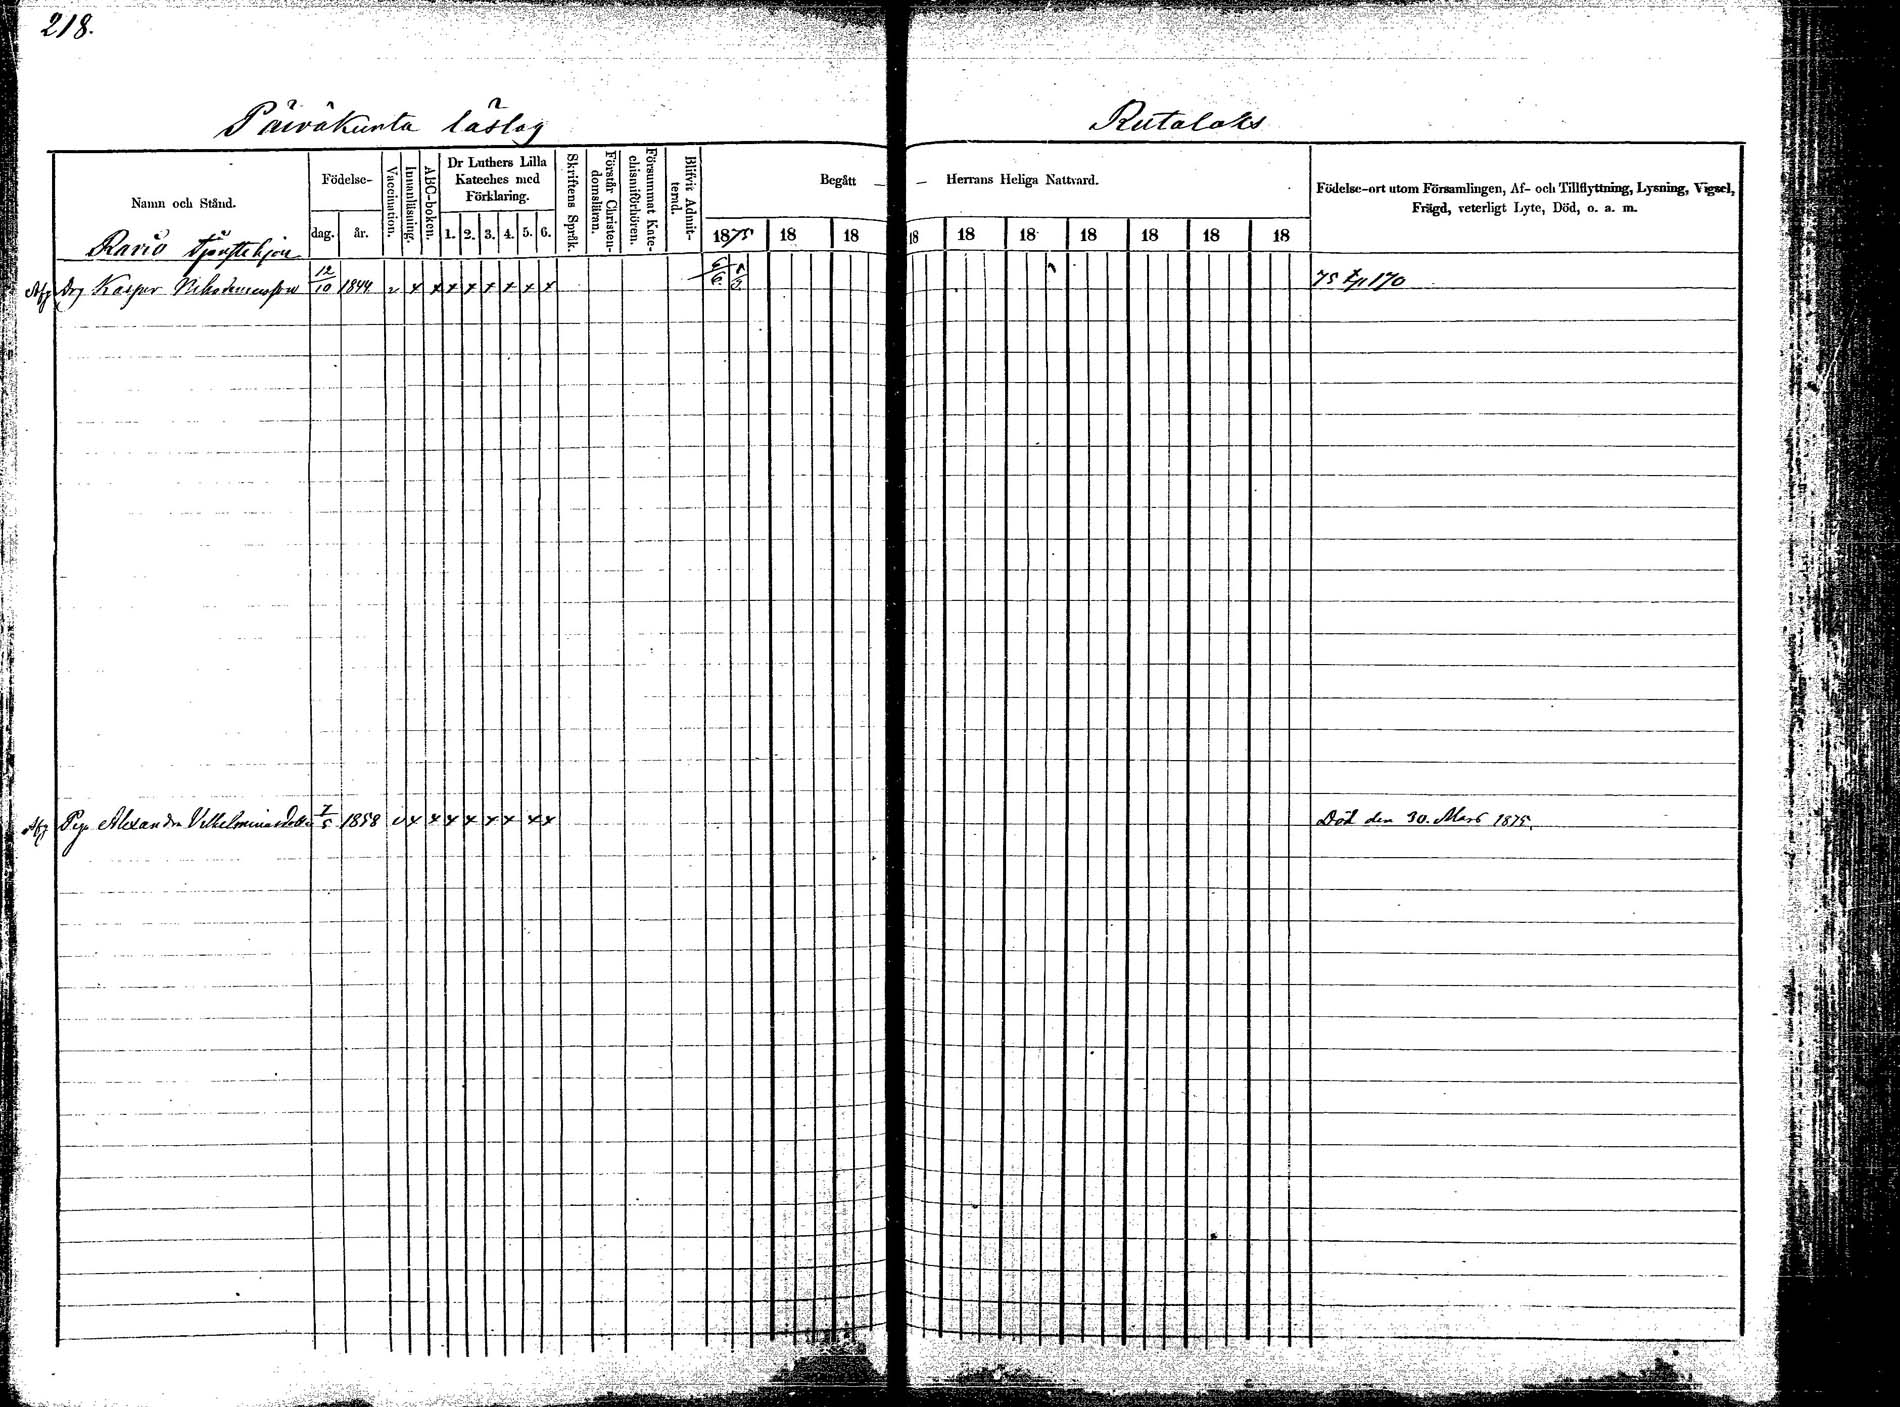 218.
Päiväkunta läslag
Rutalaks
Namn och Stånd.
Födelse-
dag.
år.
Vaccination.
Innanläsning.
ABC-boken.
Dr Luthers Lilla
Kateches med
Förklaring.
1. 2. 3. 4. 5. 6.
Skriftens Språk.
Förstår Christen-
domsläran.
Försummat Kate-
chismiförhören.
Blifvit Admit-
terad.
Begått —
— Herrans Heliga Nattvard.
1875 18 18 18 18 18 18 18 18 18
Födelse-ort utom Församlingen, Af- och Tillflyttning, Lysning, Vigsel,
Frägd, veterligt Lyte, Död, o. a. m.
Ravio tjenstehjon
Afg Drg Kasper Nikodemusson 12/10 1844 v x x x x x x x x 6/6 75 170
Afg Pig Alexandra Vilhelminasdotter 7/5 1858 v x x x x x x x x Död den 30. Mars 1875.